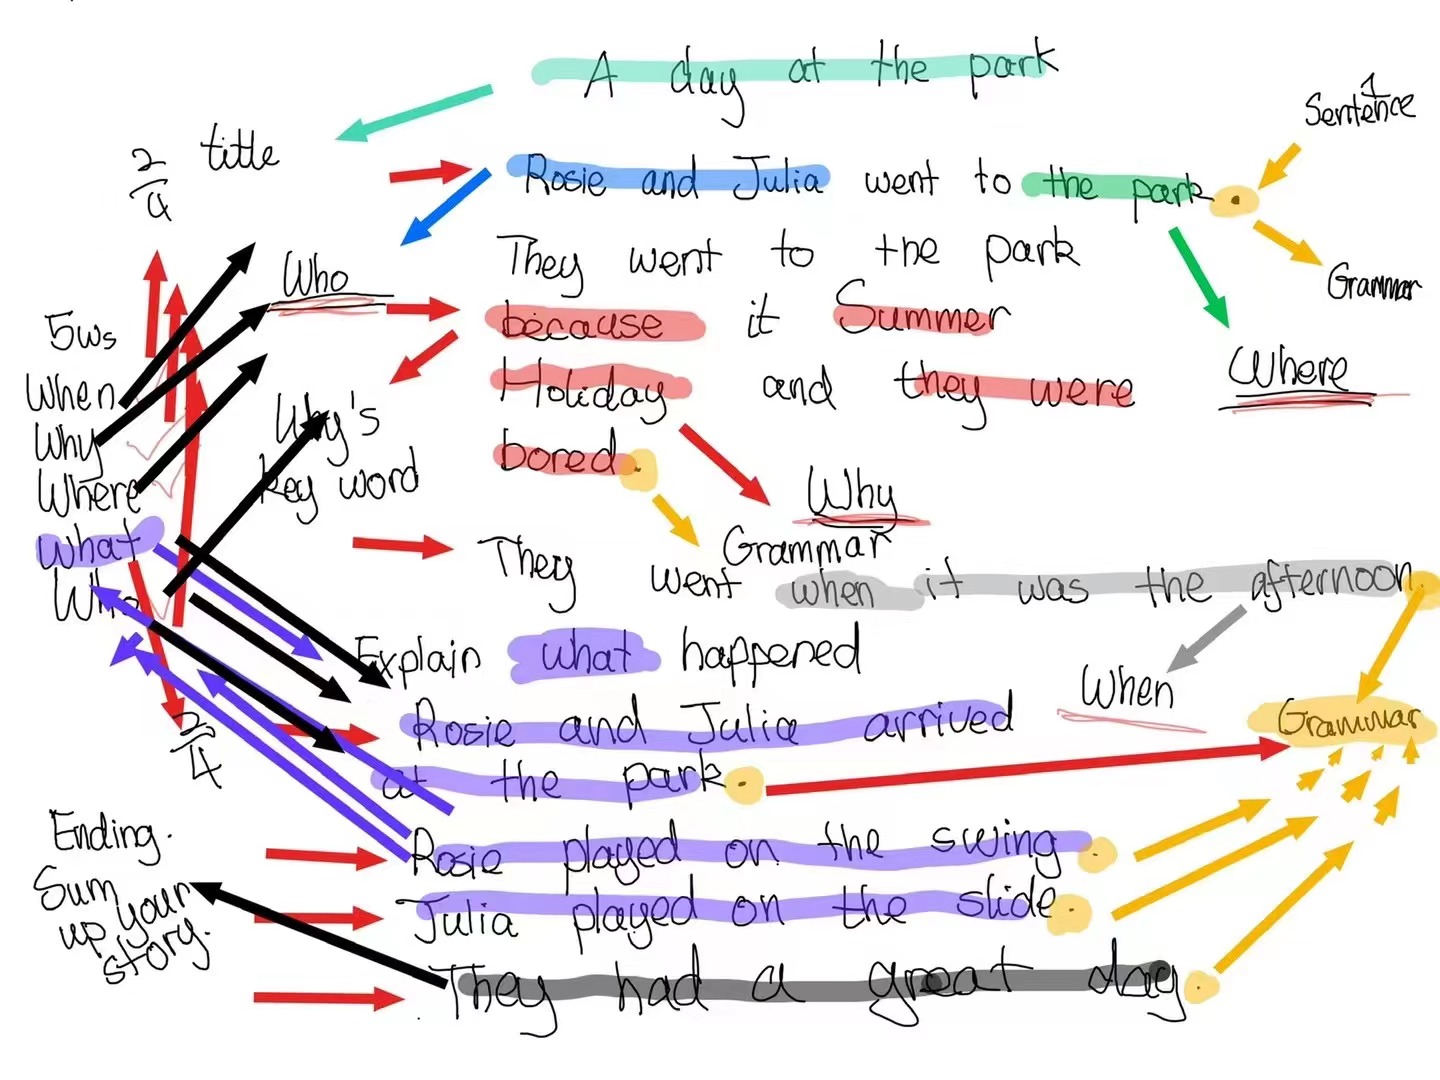 A day at the park
Sentence
1
title
2/4
Rosie and Julia went to the park.
Grammar
They went to the park
Who
because it Summer
5ws
Holiday and they were
Where
When
Why
Why's
key word
bored.
Where
Why
Grammar
what
They went when it was the afternoon.
Who
Explain what happened
When
Rosie and Julia arrived
Grammar
2/4
at the park.
Ending.
Rosie played on the swing.
Sum
up your
story.
Julia played on the slide.
They had a great day.